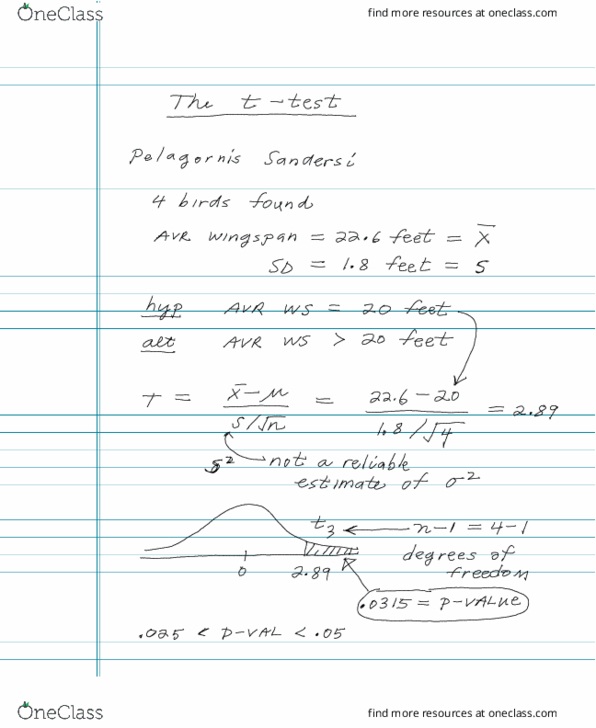 OneClass find more resources at oneclass.com
The t-test
Pelagornis Sandersi
4 birds found
AVR wingspan = 22.6 feet = x̄
SD = 1.8 feet = s
hyp AVR WS = 20 feet
alt AVR WS > 20 feet
T = (x̄ - μ) / (s/√n) = (22.6 - 20) / (1.8/√4) = 2.89
s² not a reliable
estimate of σ²
t₃ ← n-1 = 4-1
degrees of
freedom
0 2.89
.0315 = P-VALUE
.025 < P-VAL < .05
OneClass find more resources at oneclass.com